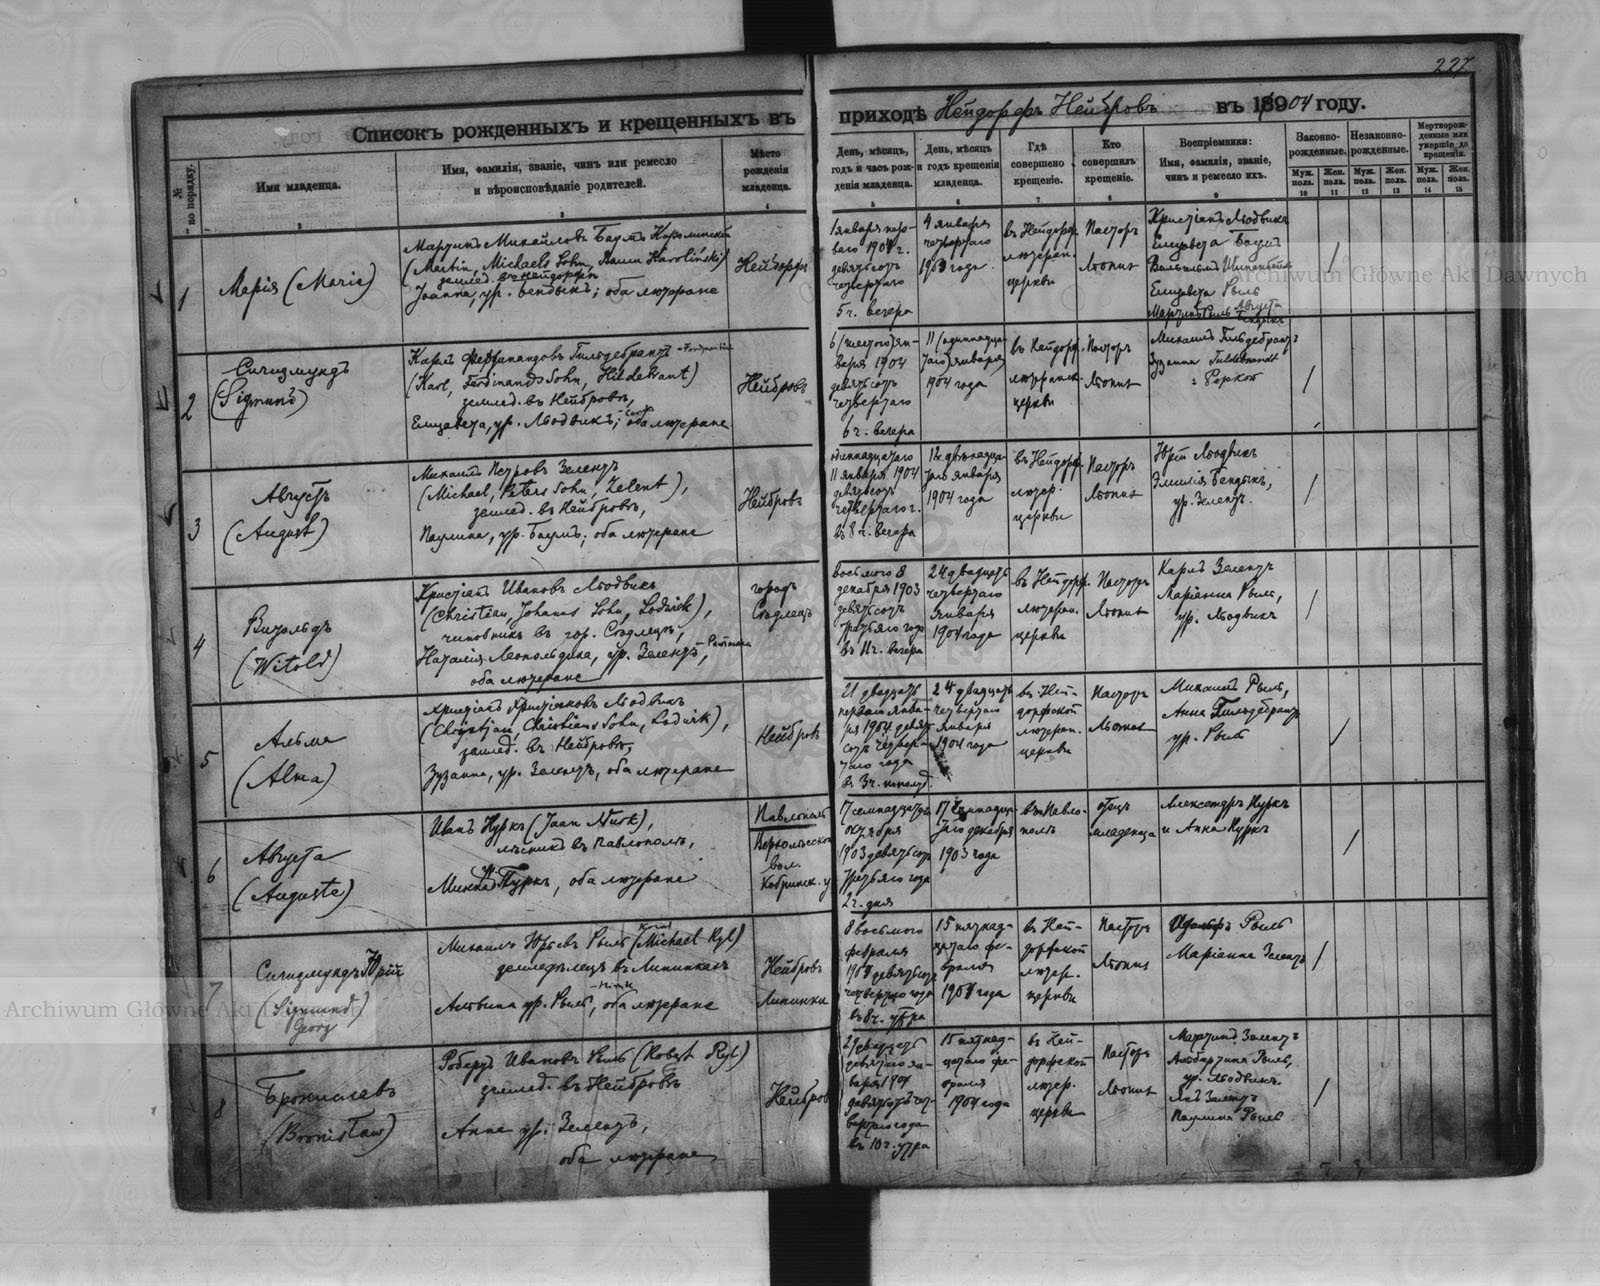 227
Списокъ рожденныхъ и крещенныхъ въ приходѣ Нейдорфъ Нейбровъ въ 1904 году.
№ по порядку.
Имя младенца.
Имя, фамилія, званіе, чинъ или ремесло
и вѣроисповѣданіе родителей.
Мѣсто
рожденія
младенца.
День, мѣсяцъ,
годъ и часъ рож-
денія младенца.
День, мѣсяцъ
и годъ крещенія
младенца.
Гдѣ
совершено
крещеніе.
Кто
совершилъ
крещеніе.
Воспріемники:
Имя, фамилія, званіе,
чинъ и ремесло ихъ.
Законно-
рожденные.
Незаконно-
рожденные.
Мертворож-
денные или
умершіе до
крещенія.
Муж. пола.
Жен. пола.
Муж. пола.
Жен. пола.
Муж. пола.
Жен. пола.
1 2 3 4 5 6 7 8 9 10 11 12 13 14 15
1
Марія (Marie)
Мартинъ Михайловъ Баумъ Каролинскій
(Martin, Michaels Sohn, Baum Karoliński)
землед. въ Нейдорфѣ
Іоанна, ур. Бендыкъ; оба лютеране
Нейдорфъ
1 января пер-
ваго 1904 г.
девятьсотъ
четвертаго
5 ч. вечера
4 января
четвертаго
1904 года
въ Нейдорф.
лютеран.
церкви
Пасторъ
Христіанъ Людвикъ
Елизавета Баумъ
Елизавета Рыль
Мартинъ Рыль Августа
Бендыкъ
2
Сигизмундъ
(Sigmund)
Карлъ Фердинандовъ Гильдебрантъ
(Karl, Ferdinands Sohn, Hildebrant)
землед. въ Нейбровѣ,
Елизавета, ур. Людвикъ; оба лютеране
Нейбровъ
6 (шестого) ян-
варя 1904
девятьсотъ
четвертаго
6 ч. вечера
11 (одиннадца-
таго) января
1904 года
въ Нейдорф.
лютеранск.
церкви
Пасторъ
Михаилъ Гильдебрантъ
Зузанна Hildebrandt
3
Августъ
(August)
Михаилъ Петровъ Зелентъ
(Michael, Peters Sohn, Zelent),
землед. въ Нейбровѣ,
Паулина, ур. Баумъ; оба лютеране
Нейбровъ
одиннадцатаго
11 января 1904
девятьсотъ
четвертаго г.
въ 8 ч. вечера
12 двѣнадца-
таго января
1904 года
въ Нейдорф.
лютер.
церкви
Пасторъ
Юрій Людвикъ
Эмилія Бендыкъ,
ур. Зелентъ.
4
Витольдъ
(Witold)
Христіанъ Ивановъ Людвикъ
(Christian, Johanns Sohn, Lodwick),
чиновникъ въ гор. Сѣдлецѣ,
Наталія Леопольдина, ур. Зелентъ,
оба лютеране
городъ
Сѣдлецъ
восьмого 8
декабря 1903
девятьсотъ
третьяго года
въ 11 ч. вечера
24 двадцать
четвертаго
января
1904 года
въ Нейдорф.
лютеран.
церкви
Пасторъ
Карлъ Зелентъ
Маріанна Рыль,
ур. Людвикъ
5
Альма
(Alma)
Христіанъ Христіановъ Людвикъ
(Chrystjan, Christians Sohn, Lodwik),
землед. въ Нейбровѣ,
Зузанна, ур. Зелентъ, оба лютеране
Нейбровъ
21 двадцать
перваго янва-
ря 1904 девять
сотъ четвер-
таго года
въ 3 ч. пополуд.
24 двадцать
четвертаго
января
1904 года
въ Ней-
дорфской
лютеран.
церкви
Пасторъ
Михаилъ Рыль,
Анна Гильдебрантъ
ур. Рыль
6
Августа
(Auguste)
Иванъ Нуркъ (Jaan Nurk),
лѣсникъ въ Павлополѣ,
оба лютеране
Павлополь
вол.
Кобринск. у.
17 семнадцатаго
октября
1903 девятьсотъ
третьяго года
2 ч. дня
декабря
1903 года
въ Павло-
полѣ
отецъ
младенца
Александръ Нуркъ
и Анна Нуркъ
7
Сигизмундъ Юрій
(Sigmund
Georg)
Михаилъ Юрьевъ Рыль (Michael Ryl)
земледѣлецъ въ Липинкахъ
Альвина ур. Рыль, оба лютеране
Нейбровъ
Липинки
8 восьмого
февраля
1904 девятьсотъ
четвертаго года
въ 8 ч. утра
15 пятнад-
цатаго фе-
враля
1904 года
въ Ней-
дорфской
лютер.
церкви
Пасторъ
Адольфъ Рыль
Маріанна Зелентъ
8
Брониславъ
(Bronisław)
Робертъ Ивановъ Рыль (Robert Ryl)
землед. въ Нейбровѣ
Анна ур. Зелентъ,
оба лютеране
Нейбровъ
двадцать
девятаго ян-
варя 1904
девятьсотъ чет-
вертаго года
въ 10 ч. утра
15 пятнад-
цатаго фе-
враля
1904 года
въ Ней-
дорфской
лютер.
церкви
Пасторъ
Мартинъ Зелентъ
Альбертина Рыль,
ур. Людвикъ.
Зелентъ
Паулина Рыль
Archiwum Główne Akt Dawnych
Archiwum Główne Akt Dawnych